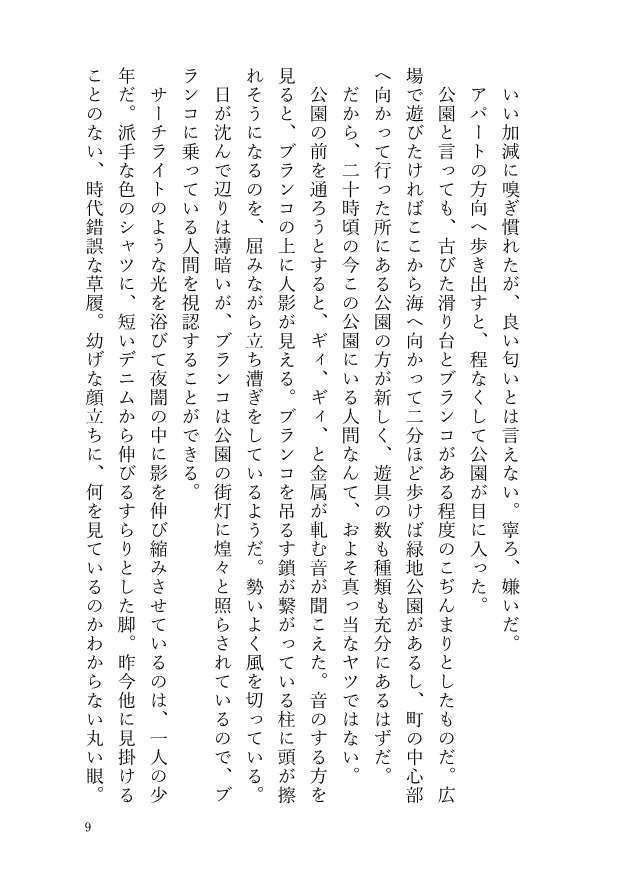 いい加減に嗅ぎ慣れたが、良い匂いとは言えない。寧ろ、嫌いだ。
アパートの方向へ歩き出すと、程なくして公園が目に入った。
公園と言っても、古びた滑り台とブランコがある程度のこぢんまりとしたものだ。広
場で遊びたければここから海へ向かって二分ほど歩けば緑地公園があるし、町の中心部
へ向かって行った所にある公園の方が新しく、遊具の数も種類も充分にあるはずだ。
だから、二十時頃の今この公園にいる人間なんて、およそ真っ当なヤツではない。
公園の前を通ろうとすると、ギィ、ギィ、と金属が軋む音が聞こえた。音のする方を
見ると、ブランコの上に人影が見える。ブランコを吊るす鎖が繋がっている柱に頭が擦
れそうになるのを、屈みながら立ち漕ぎをしているようだ。勢いよく風を切っている。
日が沈んで辺りは薄暗いが、ブランコは公園の街灯に煌々と照らされているので、ブ
ランコに乗っている人間を視認することができる。
サーチライトのような光を浴びて夜闇の中に影を伸び縮みさせているのは、一人の少
年だ。派手な色のシャツに、短いデニムから伸びるすらりとした脚。昨今他に見掛ける
ことのない、時代錯誤な草履。幼げな顔立ちに、何を見ているのかわからない丸い眼。
9